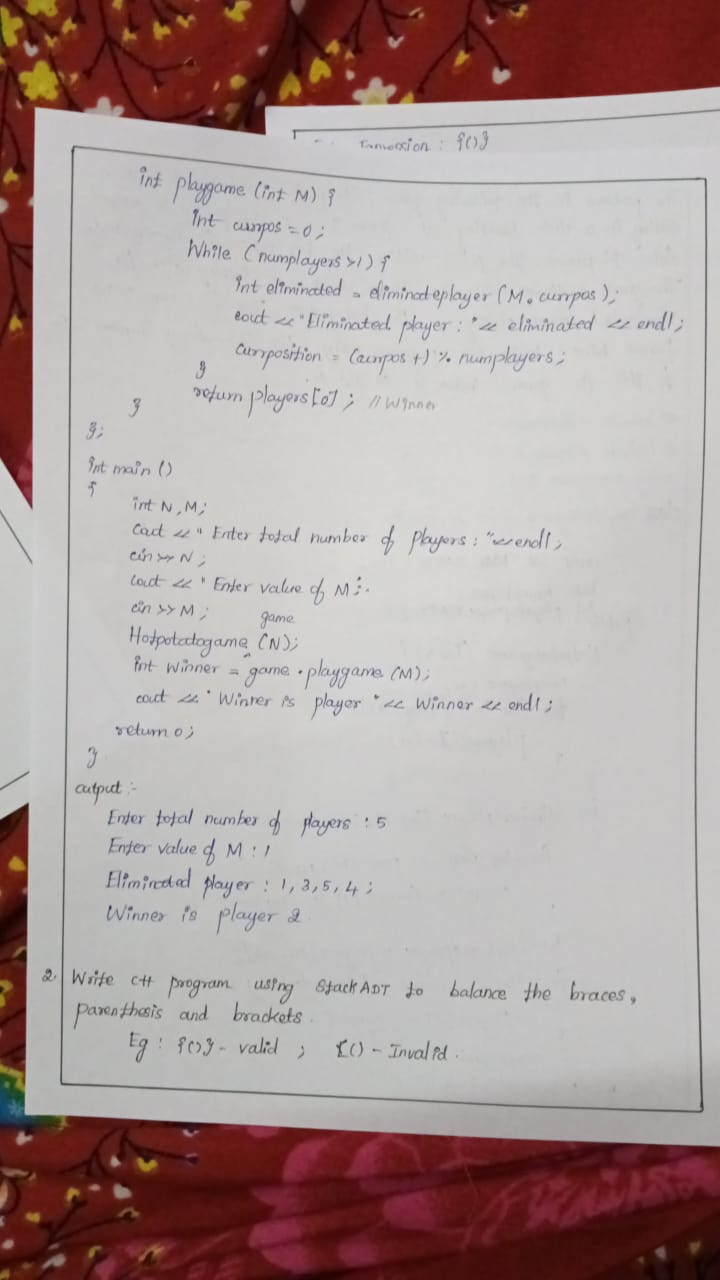 : {()}
int playgame (int M) {
int currpos = 0;
While (numplayers >1) {
int eliminated = eliminateplayer (M, currpos);
cout << "Eliminated player : "<< eliminated << endl;
Currposition = (currpos +) % numplayers;
}
return players[0]; // Winner
}
};
int main ()
{
int N, M;
Cout << " Enter total number of Players : "<<endl;
cin >> N;
Cout << " Enter value of M :
cin >> M;
game
Hotpotatogame (N);
int Winner = game . playgame (M);
cout << " Winner is player "<< Winner << endl;
return 0;
}
output :-
Enter total number of players : 5
Enter value of M : 1
Elimireted player : 1, 3, 5, 4 ;
Winner is player 2
2. Write C++ program using Stack ADT to balance the braces,
parenthosis and brackets.
Eg : {()} - valid ; [() - Invalid.